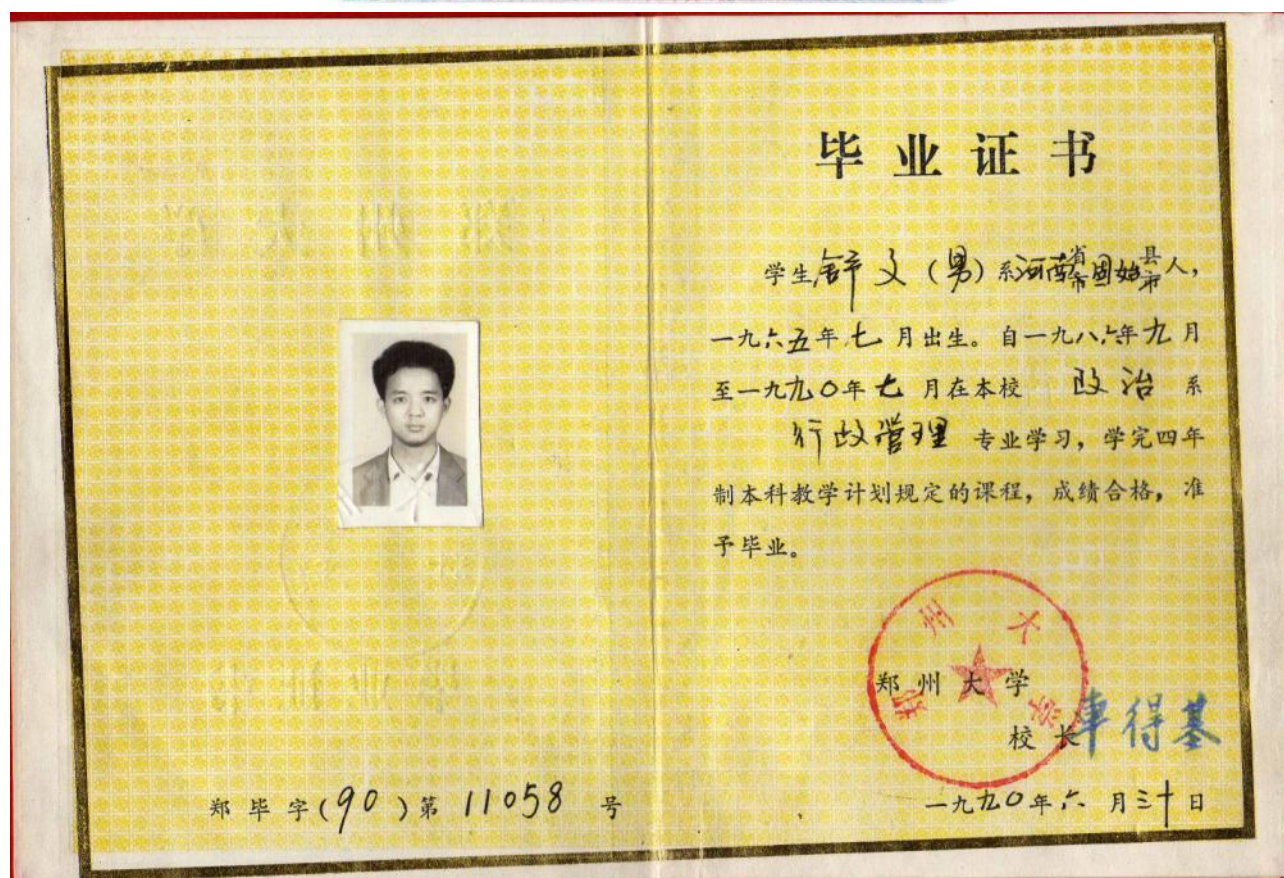 毕业证书
学生舒文(男)系河南省固始县人,
一九六五年七月出生。自一九八六年九月
至一九九〇年七月在本校 政治 系
行政管理 专业学习,学完四年
制本科教学计划规定的课程,成绩合格,准
予毕业。
郑州大学
郑州大学
校长 車得基
一九九〇年六月三十日
郑毕字(90)第 11058 号